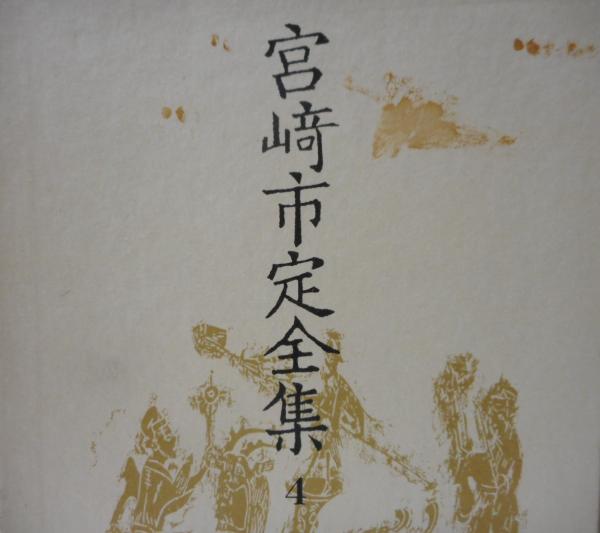 宮﨑市定全集
4